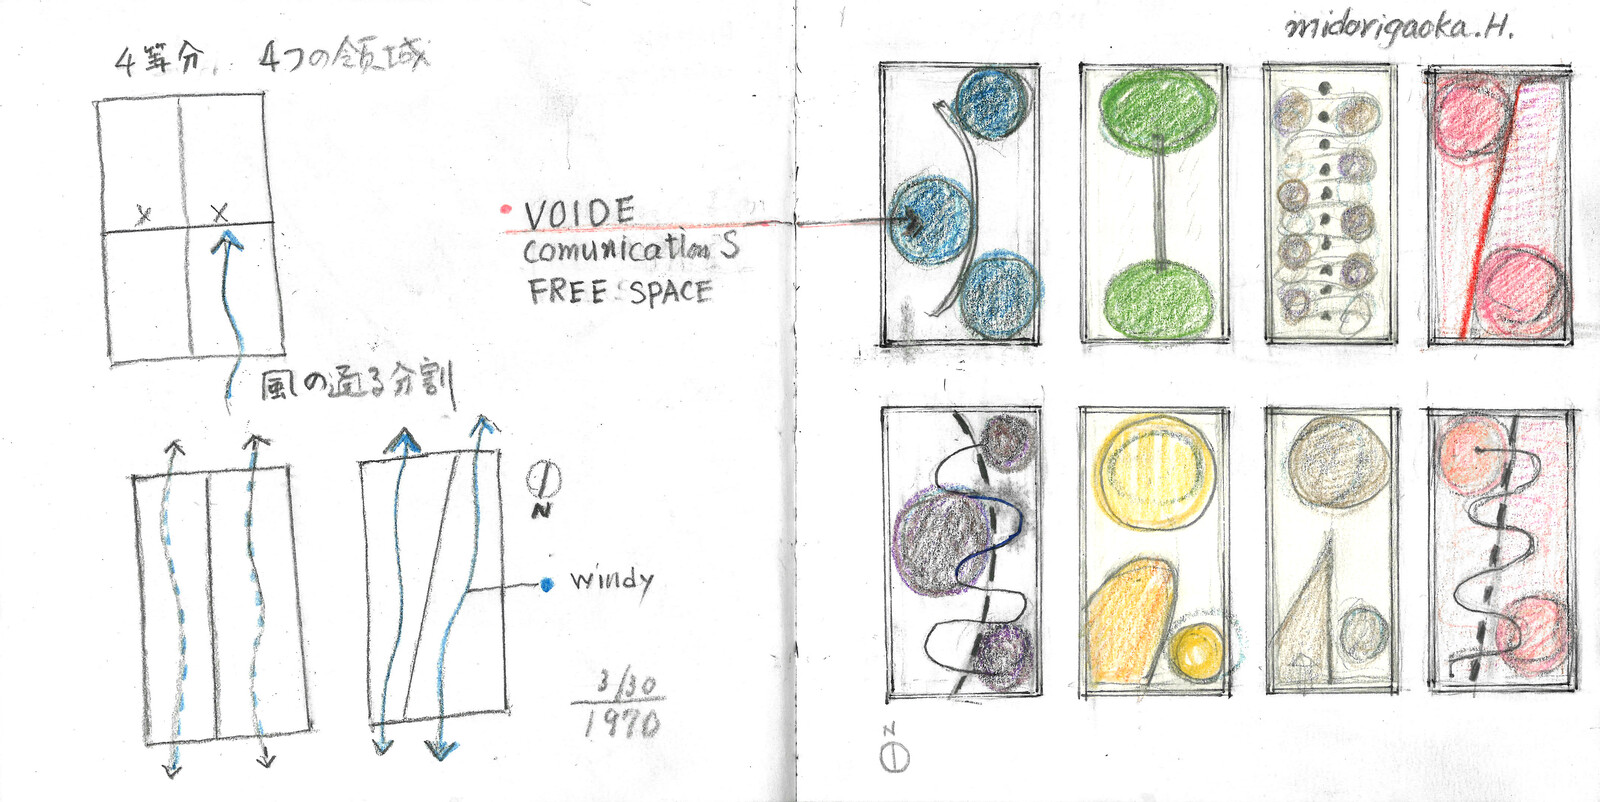 4等分. 4つの領域
VOIDE
comunication S
FREE SPACE
風の通る分割
N
windy
3/30
1970
midorigaoka.H.
N